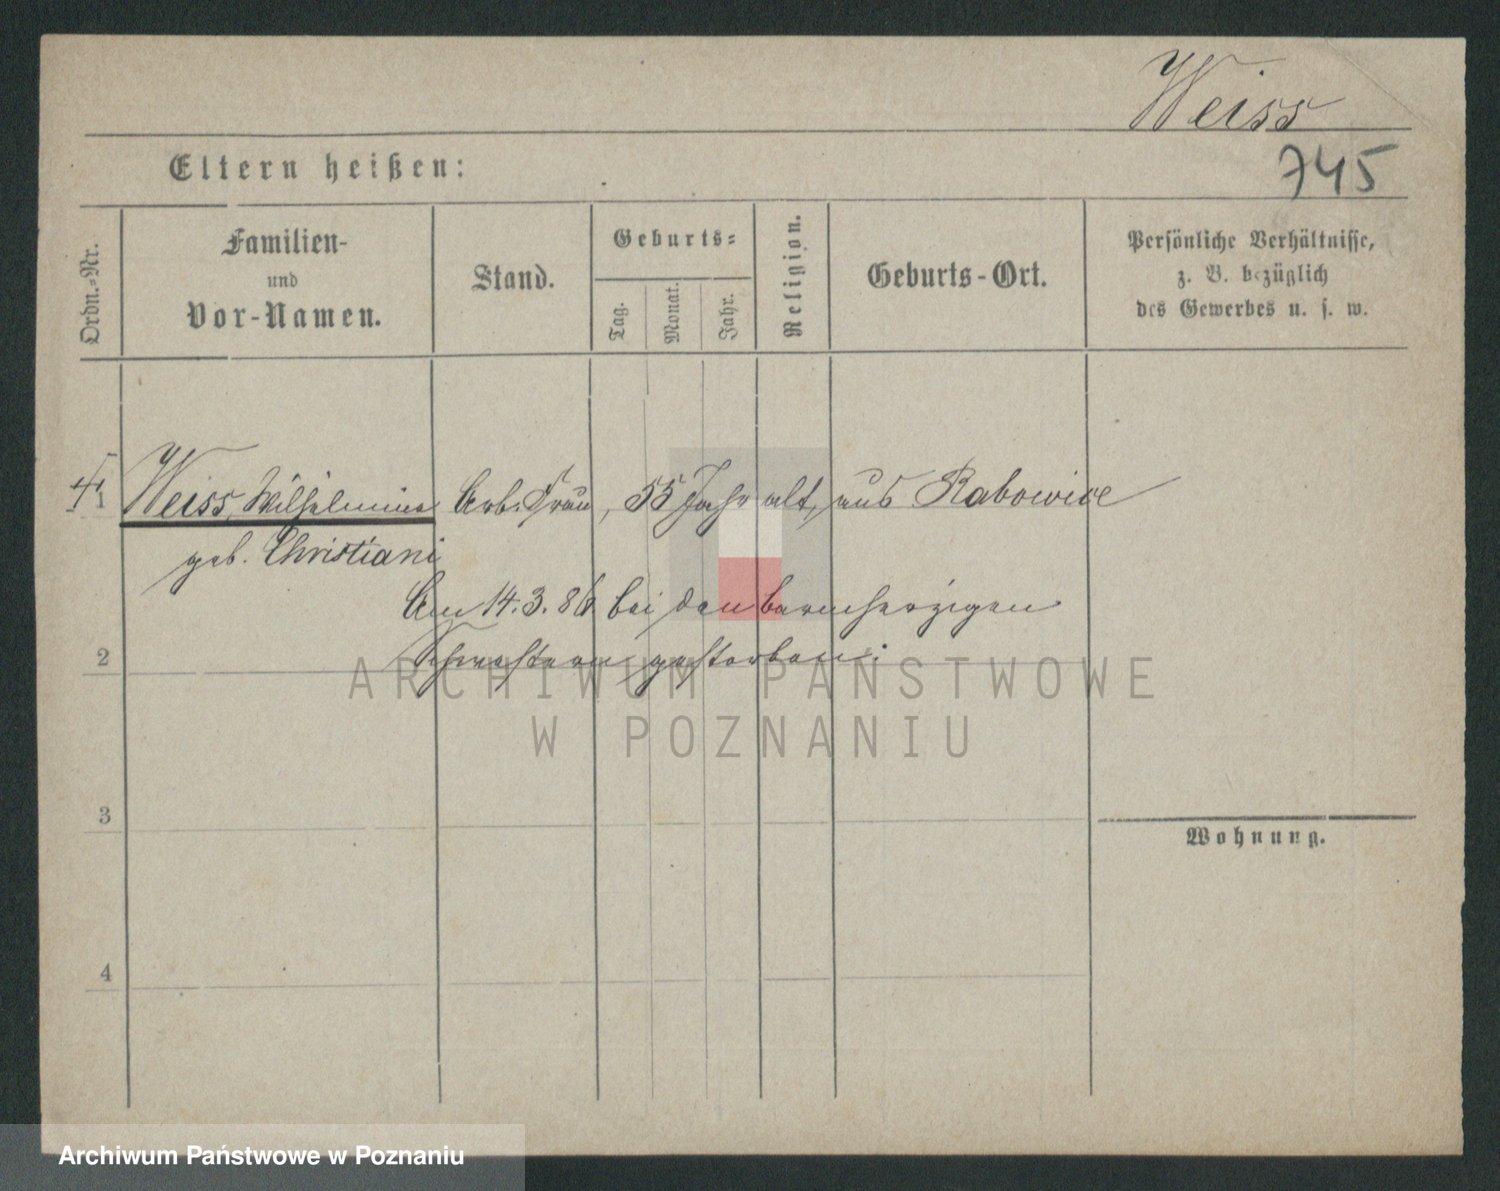 Weiss
745
Eltern heißen:
Ordn.-Nr.
Familien-
und
Vor-Namen.
Stand.
Geburts-
Tag.
Monat.
Jahr.
Religion.
Geburts-Ort.
Persönliche Verhältnisse,
z. B. bezüglich
des Gewerbes u. s. w.
1 Weiss, Wilhelmine Arb. Frau, 55 Jahr alt, aus Rabowice
geb. Christiani
Am 14.3.86 bei den barmherzigen
Schwestern gestorben.
2
ARCHIWUM PAŃSTWOWE
W POZNANIU
3
Wohnung.
4
Archiwum Państwowe w Poznaniu